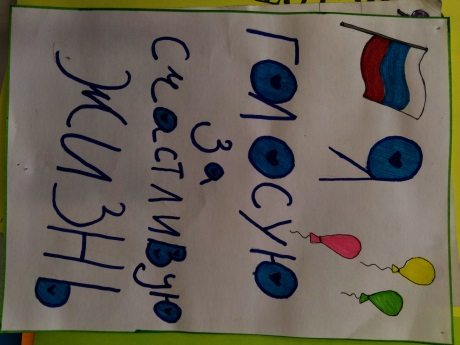 Я
ГОЛОСУЮ
За
счастливую
ЖИЗНЬ